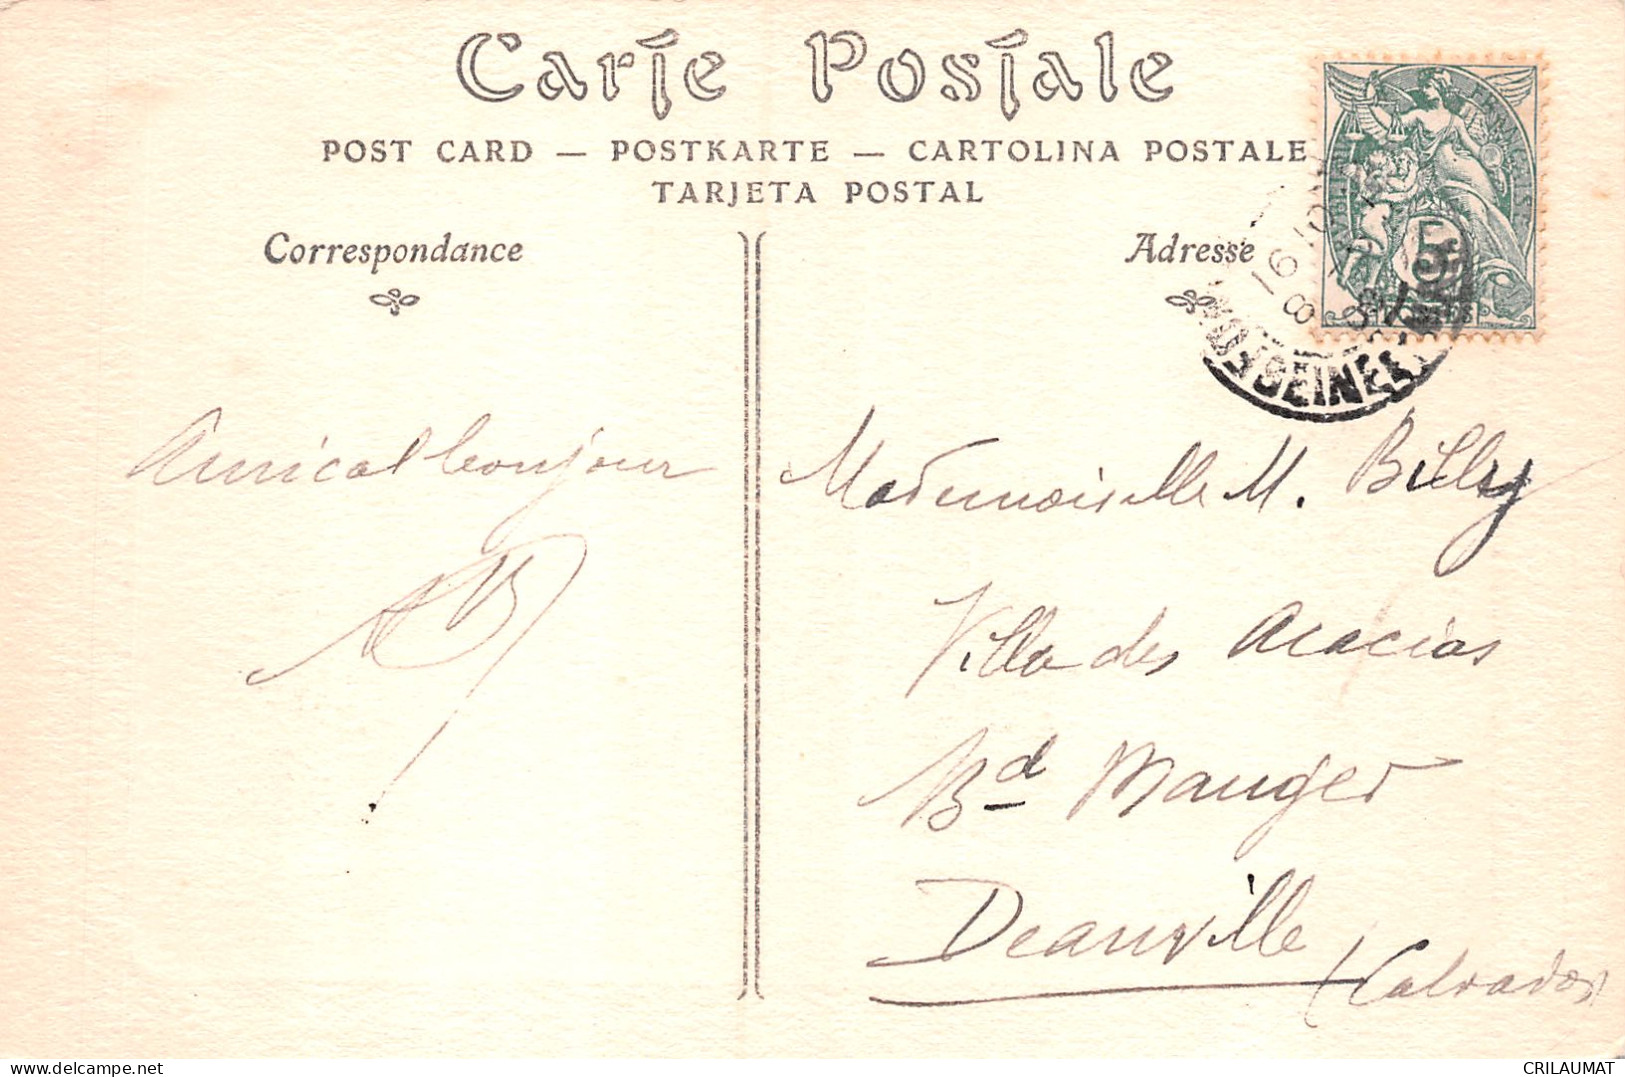 Carte Postale
POST CARD — POSTKARTE — CARTOLINA POSTALE
TARJETA POSTAL
Correspondance
Adresse
REPUBLIQUE FRANCAISE
5c
POSTES
SEINE
Amical bonjour
AB
Mademoiselle M. Billy
Villa des Acacias
Bd Mauger
Deauville
(Calvados)
www.delcampe.net
CRILAUMAT